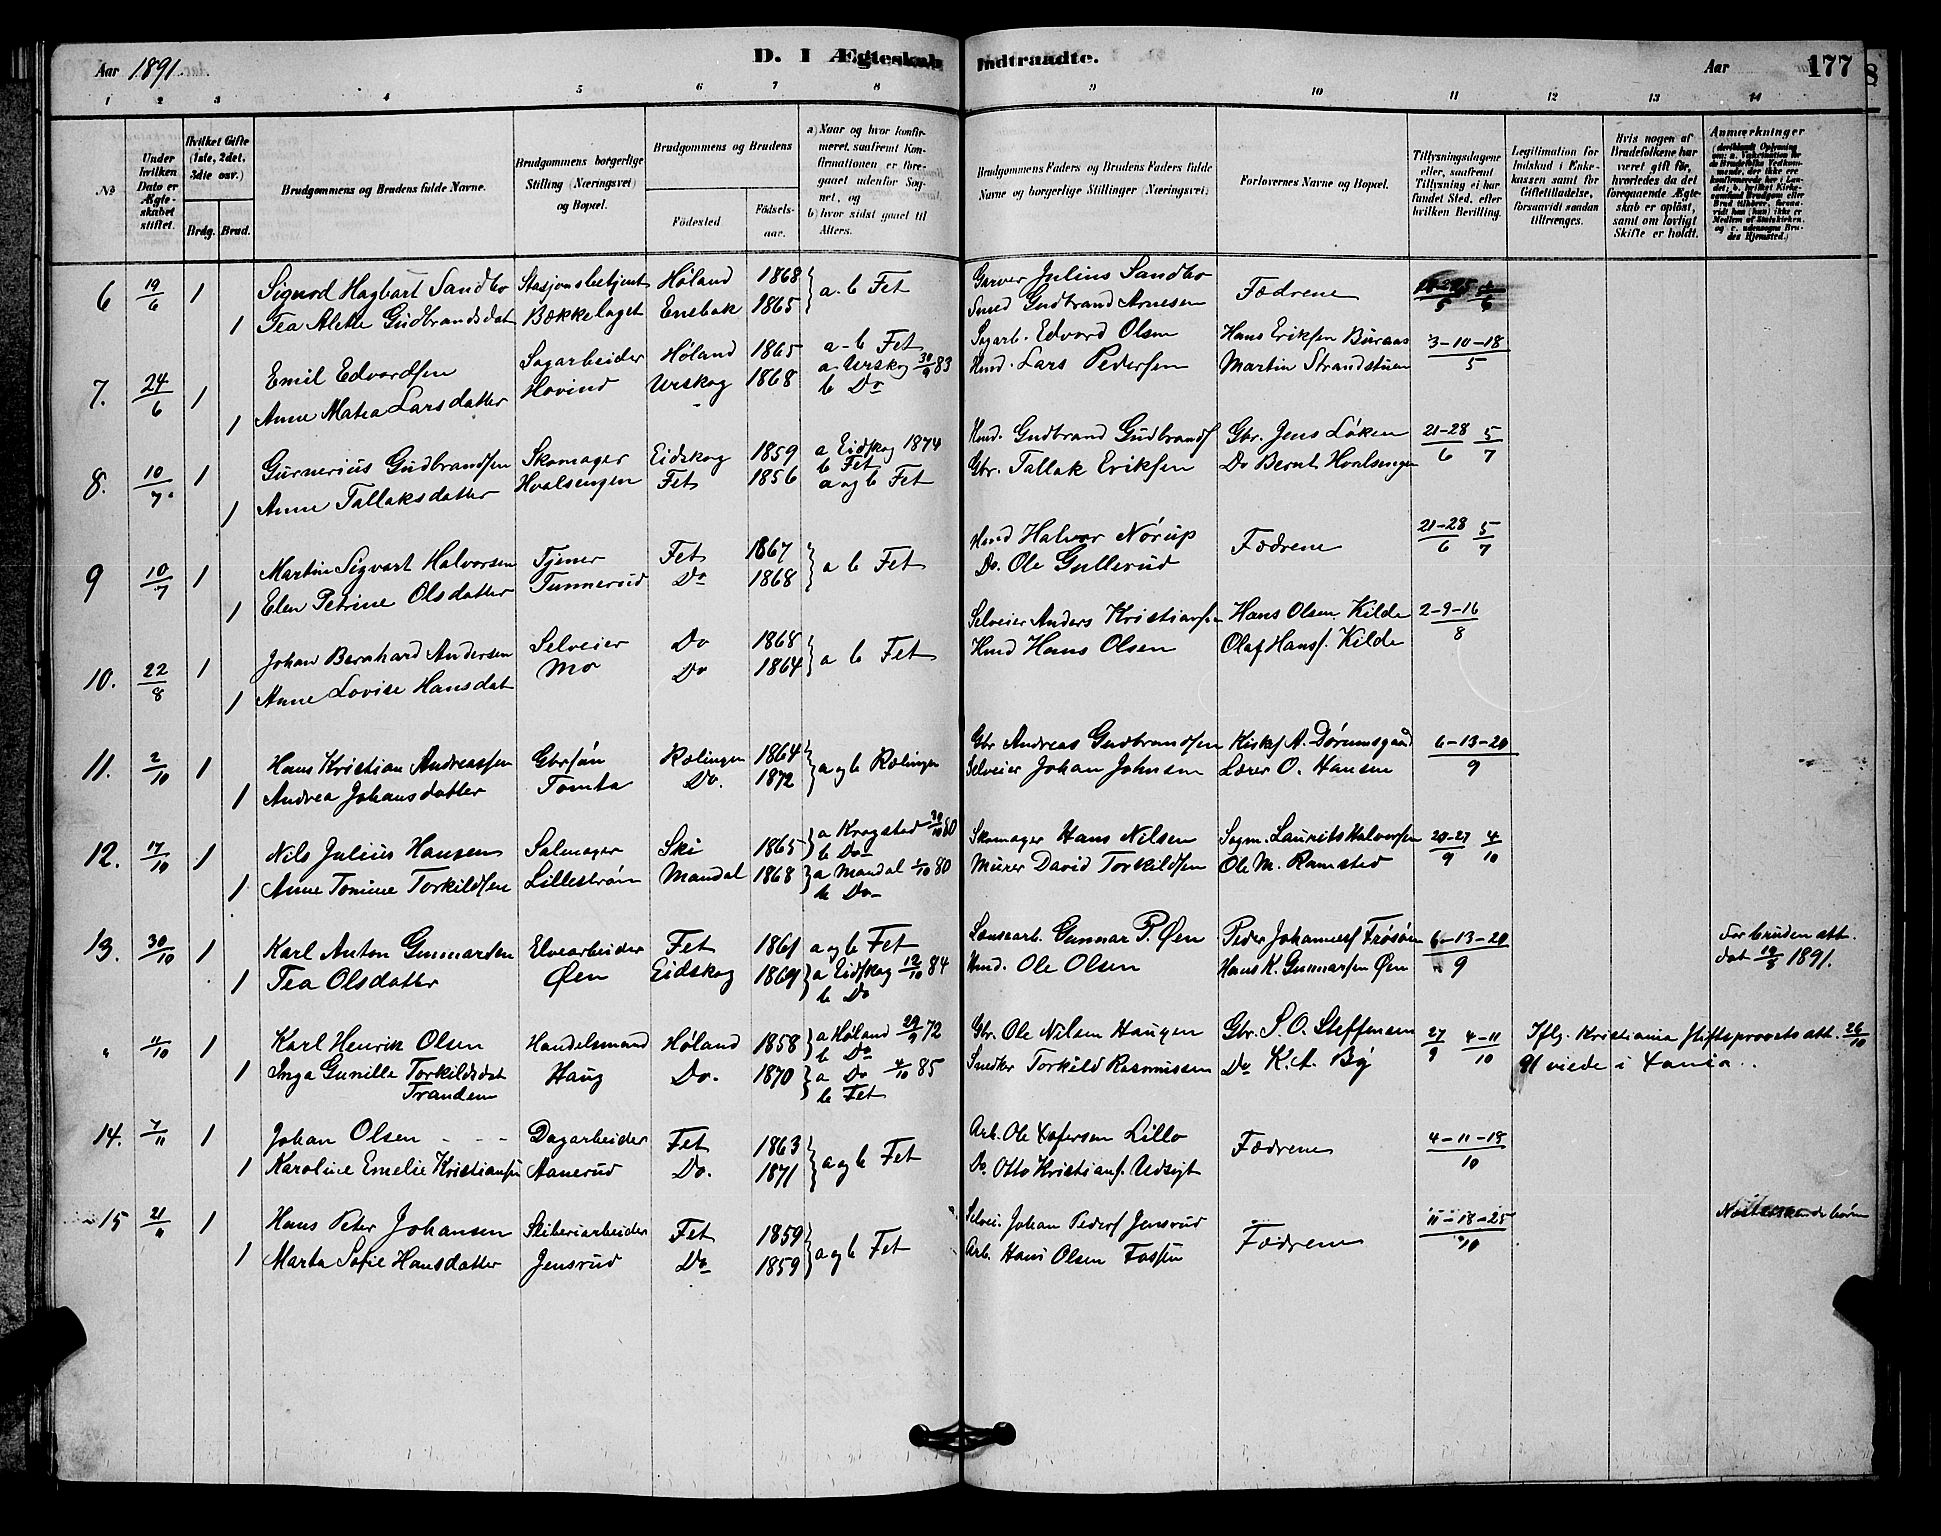 Aar 1891.
D. I Ægteskab Indtraadte.
Aar
177
8
1 2 3 4 5 6 7 8 9 10 11 12 13 14
№
Under hvilken Dato er Ægteskabet stiftet.
Hvilket Gifte (1ste, 2det, 3die osv.)
Brdg. Brud.
Brudgommens og Brudens fulde Navne.
Brudgommens borgerlige Stilling (Næringsvei) og Bopæl.
Brudgommens og Brudens
Födested. Födsels-aar.
a) Naar og hvor konfirmeret, saafremt Konfirmationen er foregaaet udenfor Sognet, og b) hvor sidst gaaet til Alters.
Brudgommens Faders og Brudens Faders fulde Navne og borgerlige Stillinger (Næringsvei)
Forlovernes Navne og Bopæl.
Tillysningsdagene eller, saafremt Tillysning ei har fundet Sted, efter hvilken Bevilling.
Legitimation for Indskud i Enkekassen samt for Giftetilladelse, forsaavidt saadan tiltrænges.
Hvis nogen af Brudefolkene har været gift för, hvorledes da det foregaaende Ægteskab er oplöst, samt om lovligt Skifte er holdt.
Anmærkninger
6 19/6 1 Sigvod Hagbart Sandbo Stasjonsbetjent Høland 1868 } a. b Fet Garver Julius Sandbo Fædrene
1 Tea Alette Gudbrandsdat Bækkelaget Enebak 1865 Smed Gudbrand Arnesen
7. 24/6 1 Emil Edvardsen Sagarbeider Høland 1865 a-b Fet Sagarb. Edvard Olsen Hans Eriksen Buraas 3-10-18/5
1 Anne Matea Larsdatter Hovind Urskog 1868 a Urskog 30/9 83 b Do Hmd. Lars Pedersen Martin Strandstuen
8. 10/7. 1 Gunnerius Gudbrandsen Skomager Eidskog 1859 a Eidskog 1874 b Fet Hmd. Gudbrand Gudbrands Gbr. Jens Løken 21-28/6 5/7
1 Anne Tallaksdatter Hvalsengen Fet 1856 a og b Fet Gbr. Tallak Eriksen Do Bernt Hvalsengen
9 10/7 1 Martin Sigvart Halvorsen Tjener Fet 1867 } a b Fet Hmd Halvor Nórup Fædrene 21-28/6 5/7
1 Elen Petrine Olsdatter Tunnerud Do 1868 Do. Ole Gullerud
10. 22/8 1 Johan Bernhard Andersen Selveier Do 1868 } a b Fet Selveier Anders Kristiansen Hans Olsen Kilde 2-9-16/8
1 Anne Lovise Hansdat Mo Do 1864 Hmd Hans Olsen Olaf Hans. Kilde
11. 2/10 1 Hans Kristian Andreassen Gbrsøn Rælingen 1864 } a og b Rælingen Gbr Andreas Gudbrandsen Kirks A. Dørumsgaard 6-13-20/9
1 Andrea Johansdatter Tomta Do. 1872 Selveier Johan Johnsen Lærer O. Hansen
12. 17/10 1 Nils Julius Hansen Salmager Ski 1865 } a Kragstad 30/10 80 b Do Skomager Hans Nilsen Sagm. Laurits Halvorsen 20-27/9 4/10
1 Anne Tomine Torkildsen Lillestrøm Mandal 1868 } a Mandal 1/10 80 b Do Murer David Torkildsen Ole M. Ramstad
13. 30/10 1 Karl Anton Gunnarsen Elvearbeider Fet 1861 a og b Fet Lænsearb. Gunnar P. Øen Peder Johannes Frøsøen 6-13-20/9 For bruden att.
1 Tea Olsdatter Øen Eidskog 1869 } a Eidskog 12/10 84 b Do Hmd. Ole Olsen Hans K. Gunnarsen Øen dat 12/8 1891.
" 11/10 1 Karl Henrik Olsen Handelsmand Høland 1858 } a Høland 29/9 72 b Do Gbr. Ole Nilsen Haugen Gbr. S. O. Steffensen 27/9 4-11/10 Iflg. Kristiania Stiftsprovsts att. 26/10
1 Inga Gunille Torkildsdat Tranden Haug Do. 1870 } a Do 4/10 85 b Fet Snedker Torkild Rasmussen Do K. A. By 91 viede i Xania.
14. 7/11 1 Johan Olsen - - - Dagarbeider Fet 1863 } a og b Fet Arb. Ole Xofersen Lillo Fædrene 4-11-18/10
1 Karoline Emelie Kristiansen Aanerud Do. 1871 Do. Otto Kristians. Udsigt
15 21/11 1 Hans Peter Johansen Sliberiarbeider Fet 1859 } a og b Fet Selvei. Johan Peders Jensrud Fædrene 11-18-25/10 Næstsøskendebørn
1 Marta Sofie Hansdatter Jensrud Do 1859 Arb. Hans Olsen Fossen